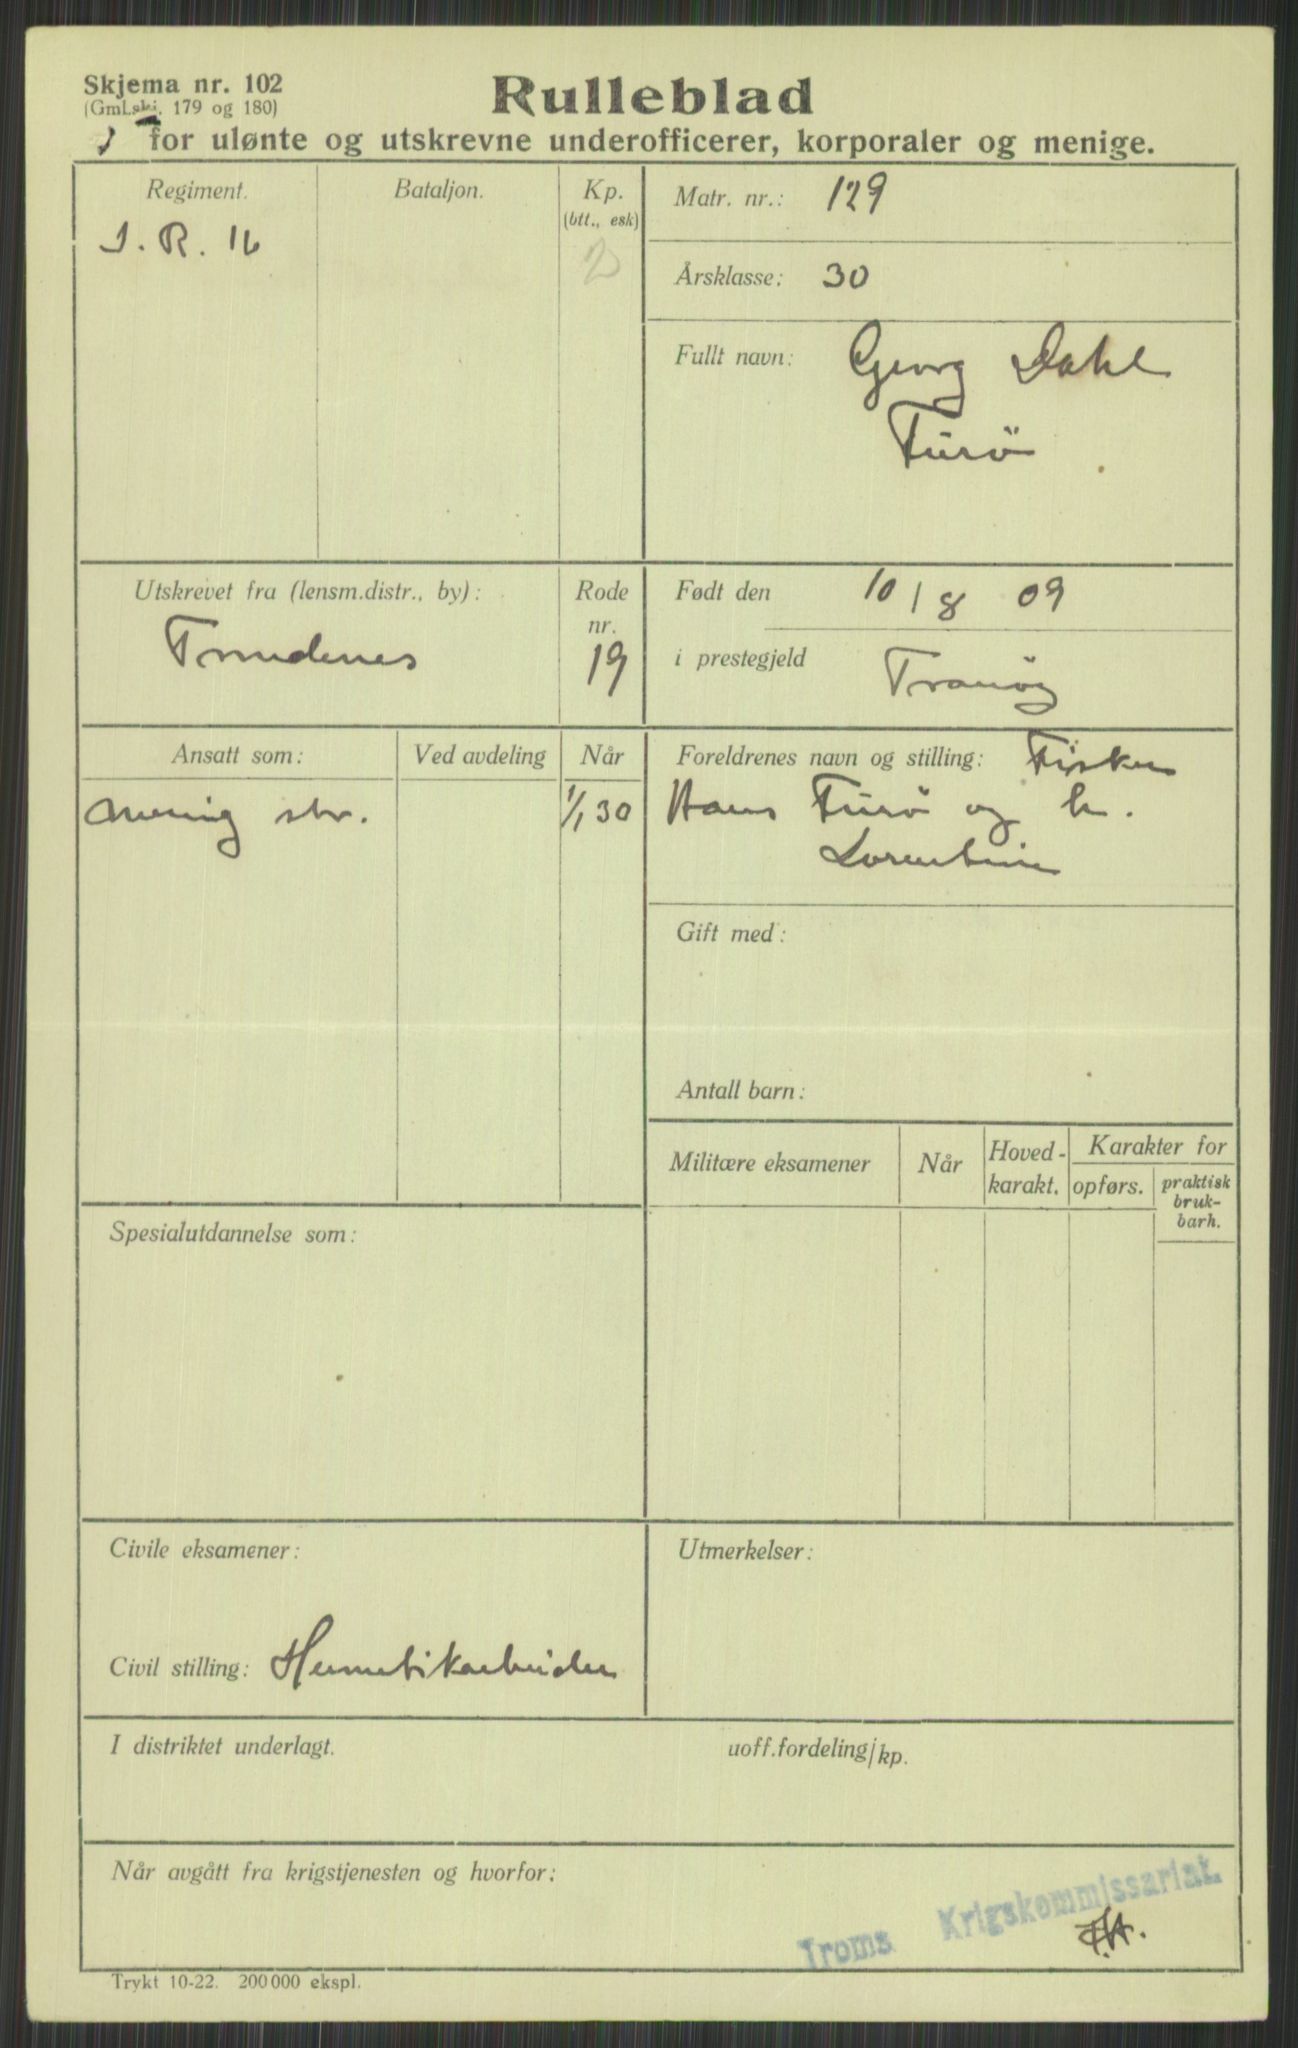 Skjema nr. 102
(Gml.skj. 179 og 180)
Rulleblad
for ulønte og utskrevne underofficerer, korporaler og menige.
Regiment.
I. R. 16
Bataljon.
Kp.
(btt., esk)
2
Matr. nr.: 129
Årsklasse: 30
Fullt navn: Georg Dahl
Furø
Utskrevet fra (lensm.distr., by):
Trondenes
Rode
nr.
19
Født den 10/8 09
i prestegjeld Tranøy
Ansatt som:
Menig str.
Ved avdeling
Når
1/1 30
Foreldrenes navn og stilling: Fisker
Hans Furø og h.
Lorentine
Gift med:
Antall barn:
Militære eksamener
Når
Hoved-
karakt.
Karakter for
opførs.
praktisk
bruk-
barh.
Spesialutdannelse som:
Civile eksamener:
Civil stilling: Hermetikarbeider
Utmerkelser:
I distriktet underlagt.
uoff.fordeling/kp.
Når avgått fra krigstjenesten og hvorfor:
Troms Krigskommissariat.
Trykt 10-22. 200 000 ekspl.